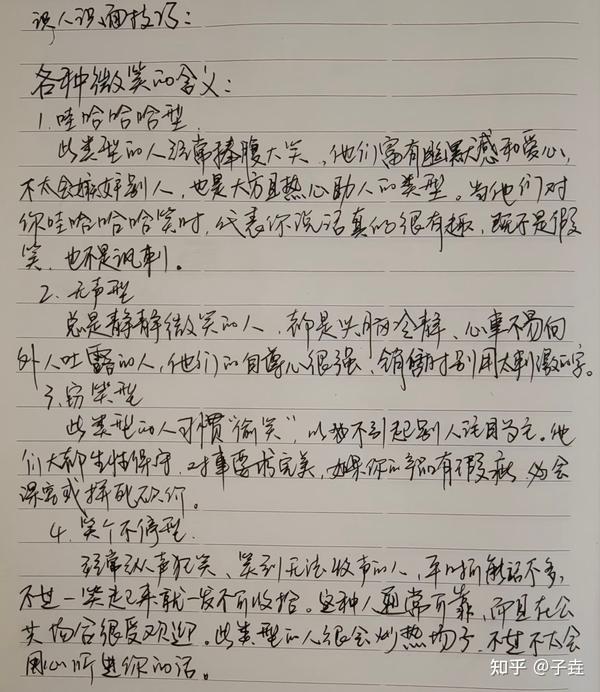 识人识面技巧:
各种微笑的含义:
1.哇哈哈哈型
此类型的人经常捧腹大笑,他们富有幽默感和爱心,
不太会嫉妒别人,也是大方且热心助人的类型。当他们对
你哇哈哈哈笑时,代表你说话真的很有趣,既不是假
笑,也不是讽刺。
2.无声型
总是静静微笑的人,都是头脑冷静、心事不易向
外人吐露的人,他们的自尊心很强,销售时别用太刺激的字。
3.窃笑型
此类型的人习惯“偷笑”,以不引起别人注目为主。他
们大都生性保守,对事要求完美,如果你的产品有瑕疵,必会
深究或拼死砍价。
4.笑个不停型
经常纵声狂笑、笑到无法收市的人,平时所说话不多,
不过一笑起来就一发不可收拾。这种人通常可靠,而且在公
共场合很受欢迎。此类型的人很会炒热场子,不过不太会
用心听进你的话。
知乎 @子垚